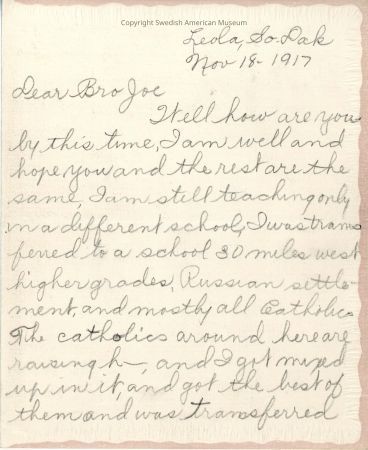 Copyright Swedish American Museum
Leola, So. Dak
Nov 18- 1917
Dear Bro Joe
Well how are you
by this time, I am well and
hope you and the rest are the
same, I am still teaching only
in a different school, I was trans
ferred to a school 30 miles west
higher grades, Russian settle-
ment, and mostly all Catholics
The catholics around here are
raising h—, and I got mixed
up in it, and got the best of
them and was transferred